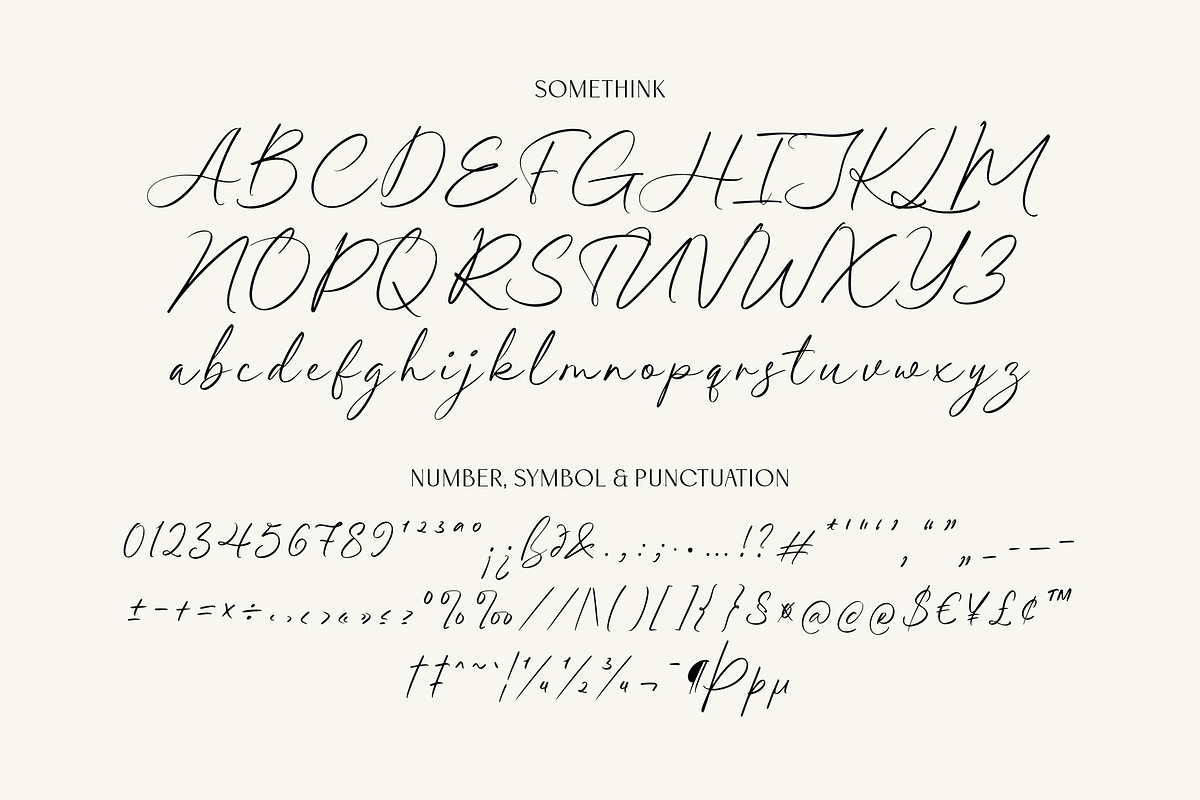 SOMETHINK
ABCDEFGHIJKLM
NOPQRSTUVWXYZ
abcdefghijklmnopqrstuvwxyz
NUMBER, SYMBOL & PUNCTUATION
0123456789¹²³ªº¡¿ß∂&.,:;·•…!?#*'"‘’‚“”„_-–—
±−+=×÷<>‹›«»≤≥°%‰/⁄|\()[]{}§¤@©®$€¥£¢™
†‡^~`¦¼½¾¬¯¶Þþµ